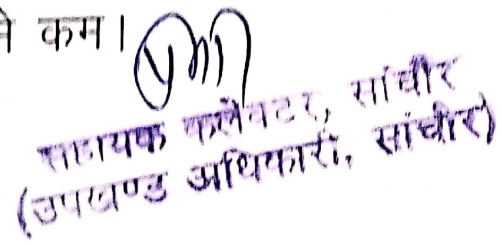 ने कम।
सहायक कलेक्टर, सांचौर
(उपखण्ड अधिकारी, सांचौर)